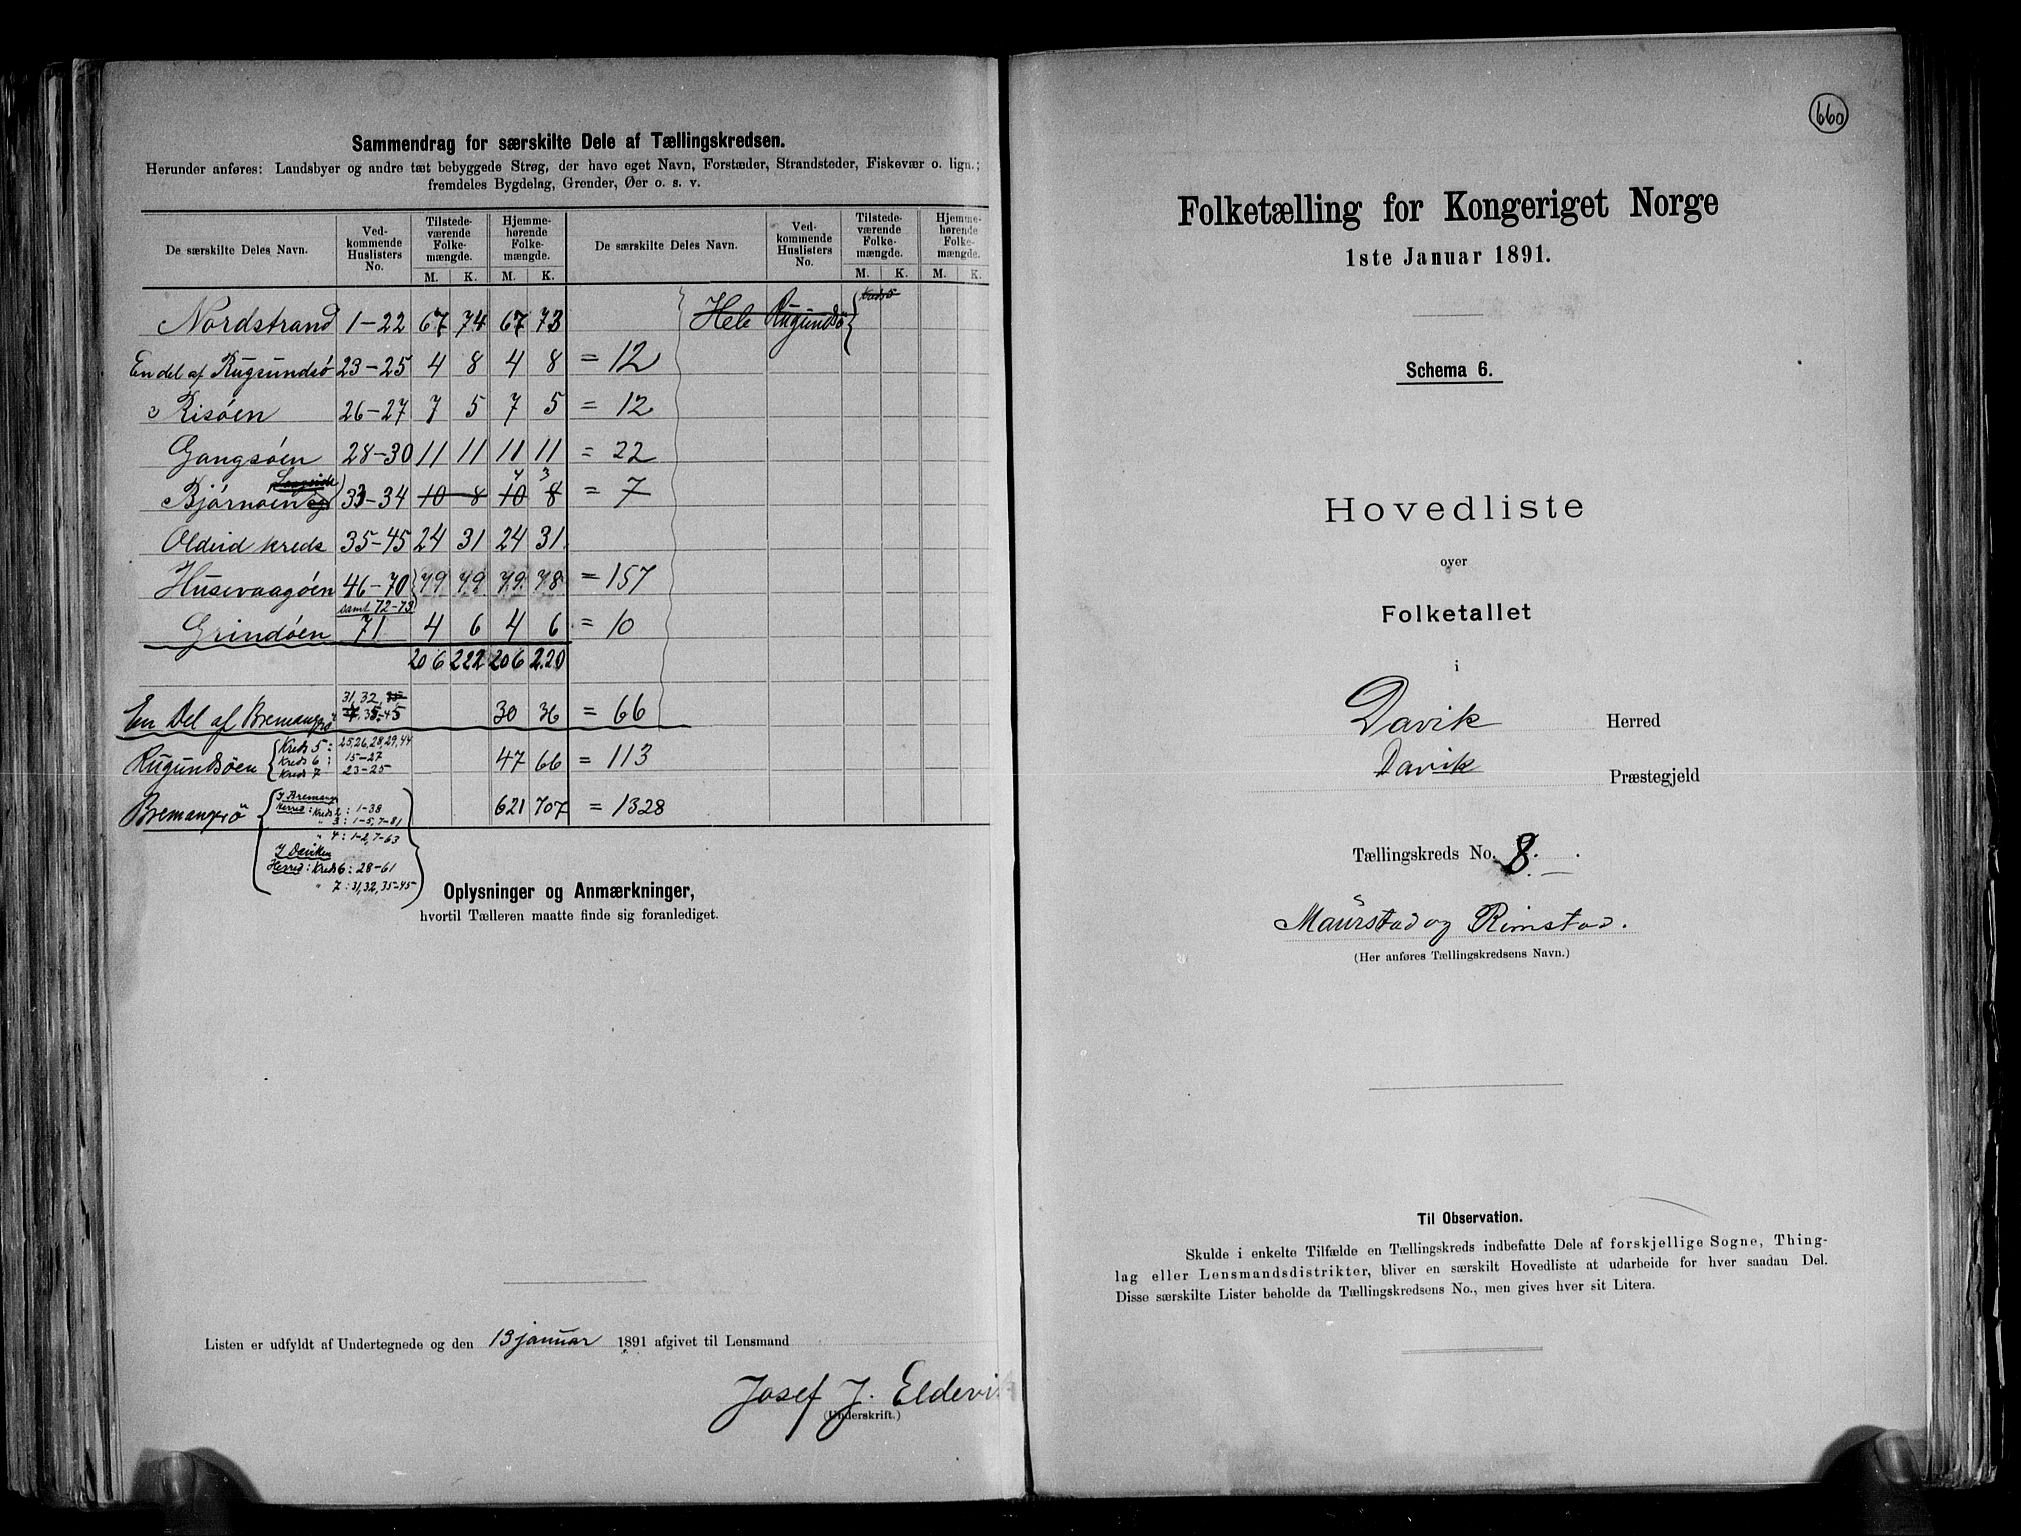 Sammendrag for særskilte Dele af Tællingskredsen.
Herunder anføres: Landsbyer og andre tæt bebyggede Strøg, der have eget Navn, Forstæder, Strandsteder, Fiskevær o. lign.;
fremdeles Bygdelag, Grender, Øer o. s. v.
De særskilte Deles Navn. Vedkommende Huslisters No. Tilstedeværende Folkemængde. M. K. Hjemmehørende Folkemængde. M. K. De særskilte Deles Navn. Vedkommende Huslisters No. Tilstedeværende Folkemængde. M. K. Hjemmehørende Folkemængde. M. K.
Nordstrand 1-22 67 74 67 73 Hele Rugundsö Kreds 5
En del af Rugsundsö 23-25 4 8 4 8 = 12
Risöen 26-27 7 5 7 5 = 12
Gangsöen 28-30 11 11 11 11 = 22
7 3
Bjørnöen og 33-34 10 8 10 8 = 7
Oldeid kreds 35-45 24 31 24 31
Husevaagöen 46-70 79 79 79 78 = 157
samt 72-73
Grindöen 71 4 6 4 6 = 10
206 222 206 220
31, 32,
En Del af Bremangsö 35-45 30 36 = 66
Rugundsöen Kreds 5: 25, 26, 28, 29, 44 47 66 = 113
Kreds 6: 15-27
Kreds 7 23-25
Bremangsö I Bremang 621 707 = 1328
Herred: Kreds 2: 1-38
" 3: 1-5, 7-81
" 4: 1-2, 7-63
I Daviken
Herred: Kreds 6: 28-61
" 7: 31, 32, 35-45
Oplysninger og Anmærkninger,
hvortil Tælleren maatte finde sig foranlediget.
Listen er udfyldt af Undertegnede og den 13 januar 1891 afgivet til Lensmand
Josef J. Eldevik
(Underskrift.)
660
Folketælling for Kongeriget Norge
1ste Januar 1891.
Schema 6.
Hovedliste
over
Folketallet
i
Davik Herred
Davik Præstegjeld
Tællingskreds No. 8.
Maurstad og Rimstad.
(Her anføres Tællingskredsens Navn.)
Til Observation.
Skulde i enkelte Tilfælde en Tællingskreds indbefatte Dele af forskjellige Sogne, Thing-
lag eller Lensmandsdistrikter, bliver en særskilt Hovedliste at udarbeide for hver saadan Del.
Disse særskilte Lister beholde da Tællingskredsens No., men gives hver sit Litera.